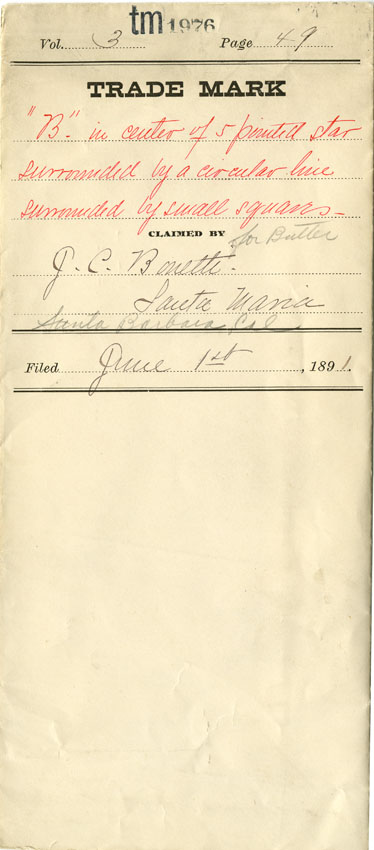 tm 1976
Vol. 3 Page 49
TRADE MARK
"B." in center of 5 pointed star
surrounded by a circular line
surrounded by small squares—
CLAIMED BY
for Butter
J. C. Bonetti.
Santa Maria
Santa Barbara Cal
Filed June 1st, 1891.